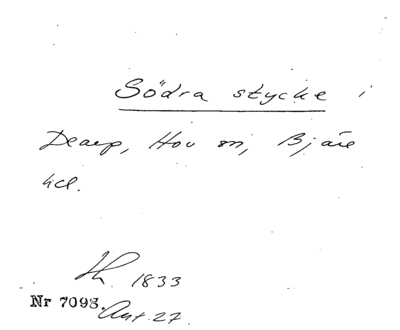 Södra stycke i
Dearp, Hov sn, Bjäre
hd.
1833
Nr 7093. Ant. 27.